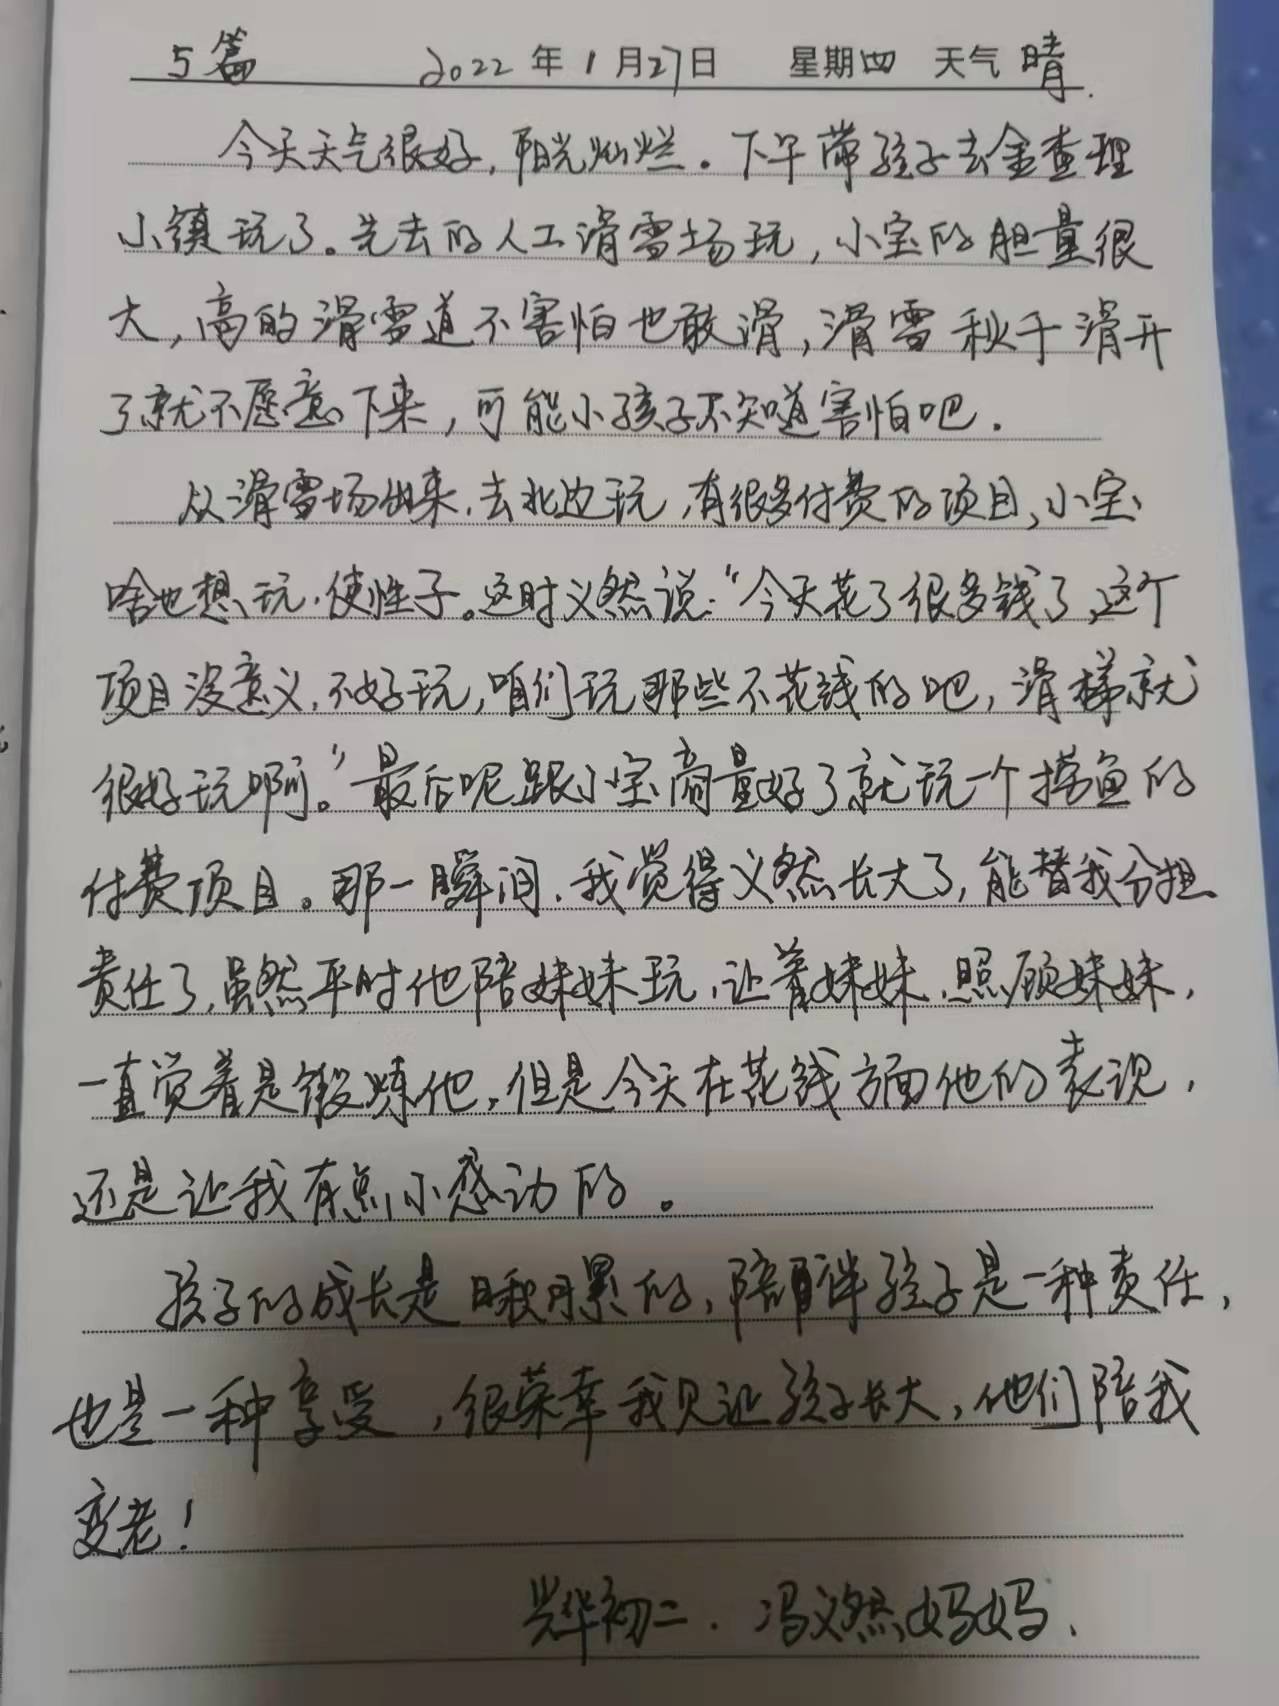 5篇 2022年1月27日 星期四 天气 晴.
今天天气很好,阳光灿烂.下午带孩子去金查理
小镇玩了。先去的人工滑雪场玩,小宝的胆量很
大,高的滑雪道不害怕也敢滑,滑雪秋千滑开
了就不愿意下来,可能小孩子不知道害怕吧.
从滑雪场出来,去北边玩,有很多付费的项目,小宝
啥也想玩,使性子。这时义然说:“今天花了很多钱了,这个
项目没意义,不好玩,咱们玩那些不花钱的吧,滑梯就
很好玩啊。”最后呢跟小宝商量好了就玩一个捞鱼的
付费项目。那一瞬间,我觉得义然长大了,能替我分担
责任了,虽然平时他陪妹妹玩,让着妹妹,照顾妹妹,
一直觉着是锻炼他,但是今天在花钱方面他的表现,
还是让我有点小感动的。
孩子的成长是日积月累的,陪伴孩子是一种责任,
也是一种享受,很荣幸我见证孩子长大,他们陪我
变老!
兴华初二.冯义然妈妈.